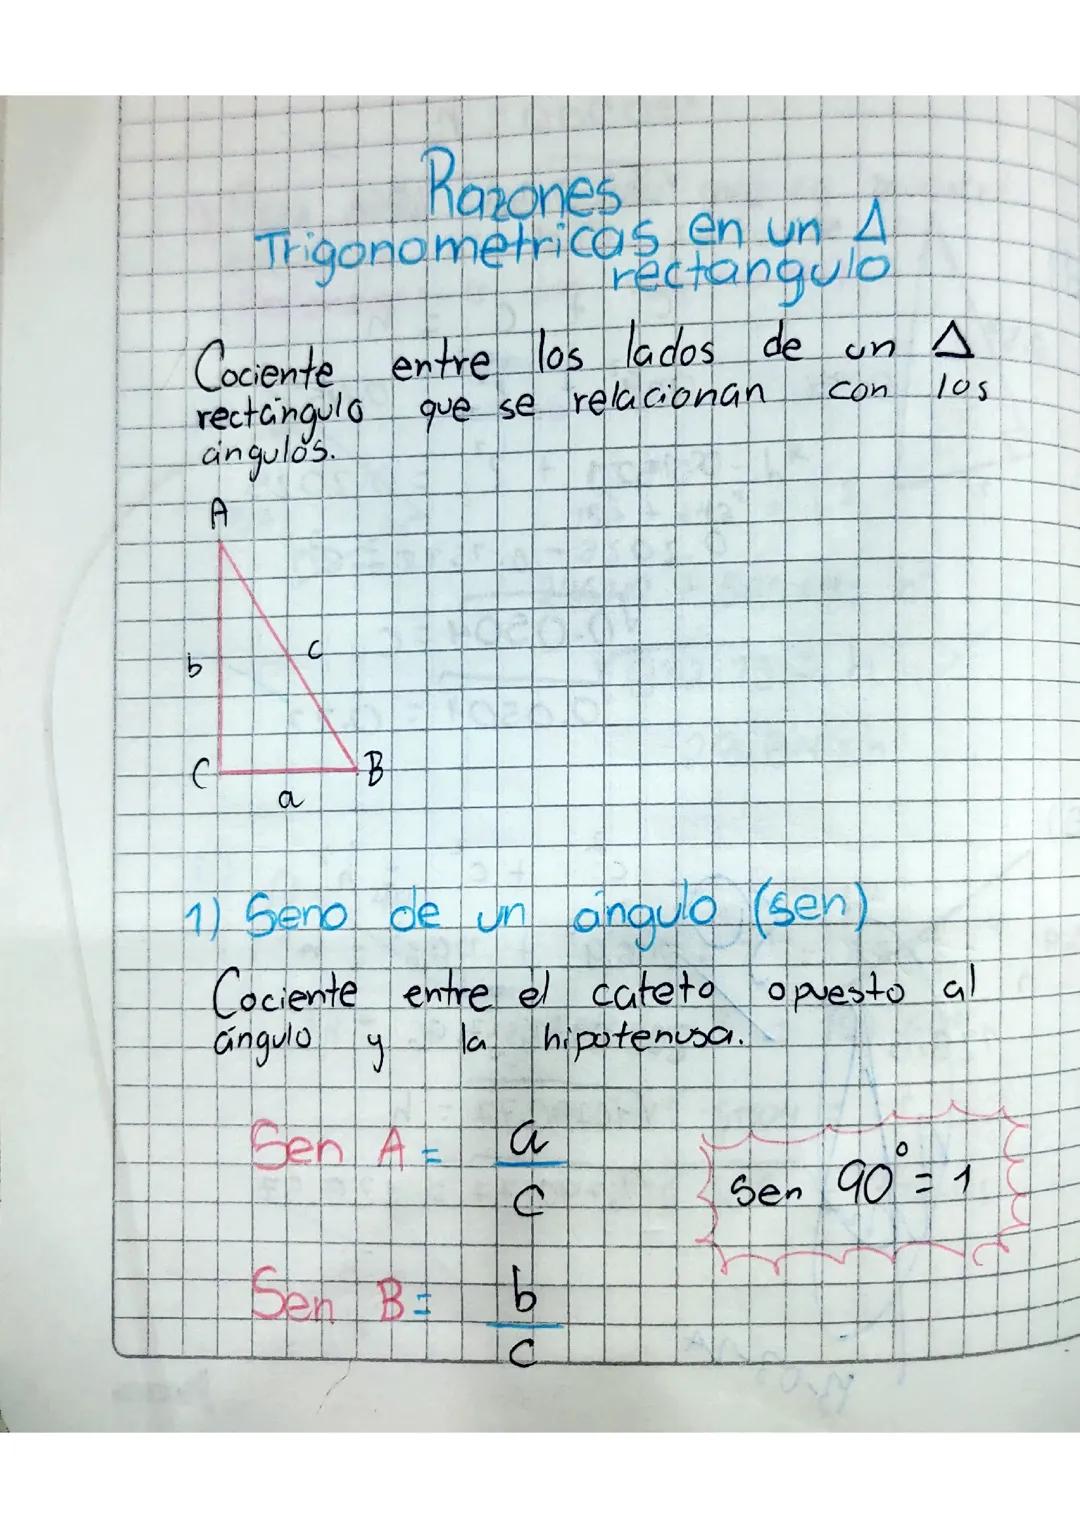 Razones
Trigonometricas en un Δ
rectangulo
Cociente entre los lados de un Δ
rectángulo que se relacionan con los
ángulos.
A
b
c
C
B
a
1) Seno de un ángulo (sen)
Cociente entre el cateto opuesto al
ángulo y la hipotenusa.
Sen A = a/c
Sen 90° = 1
Sen B = b/c